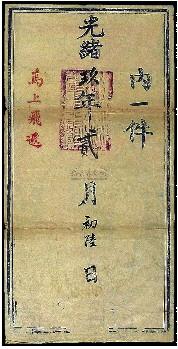 內一件
光緒玖年貳月初陸日
馬上飛遞